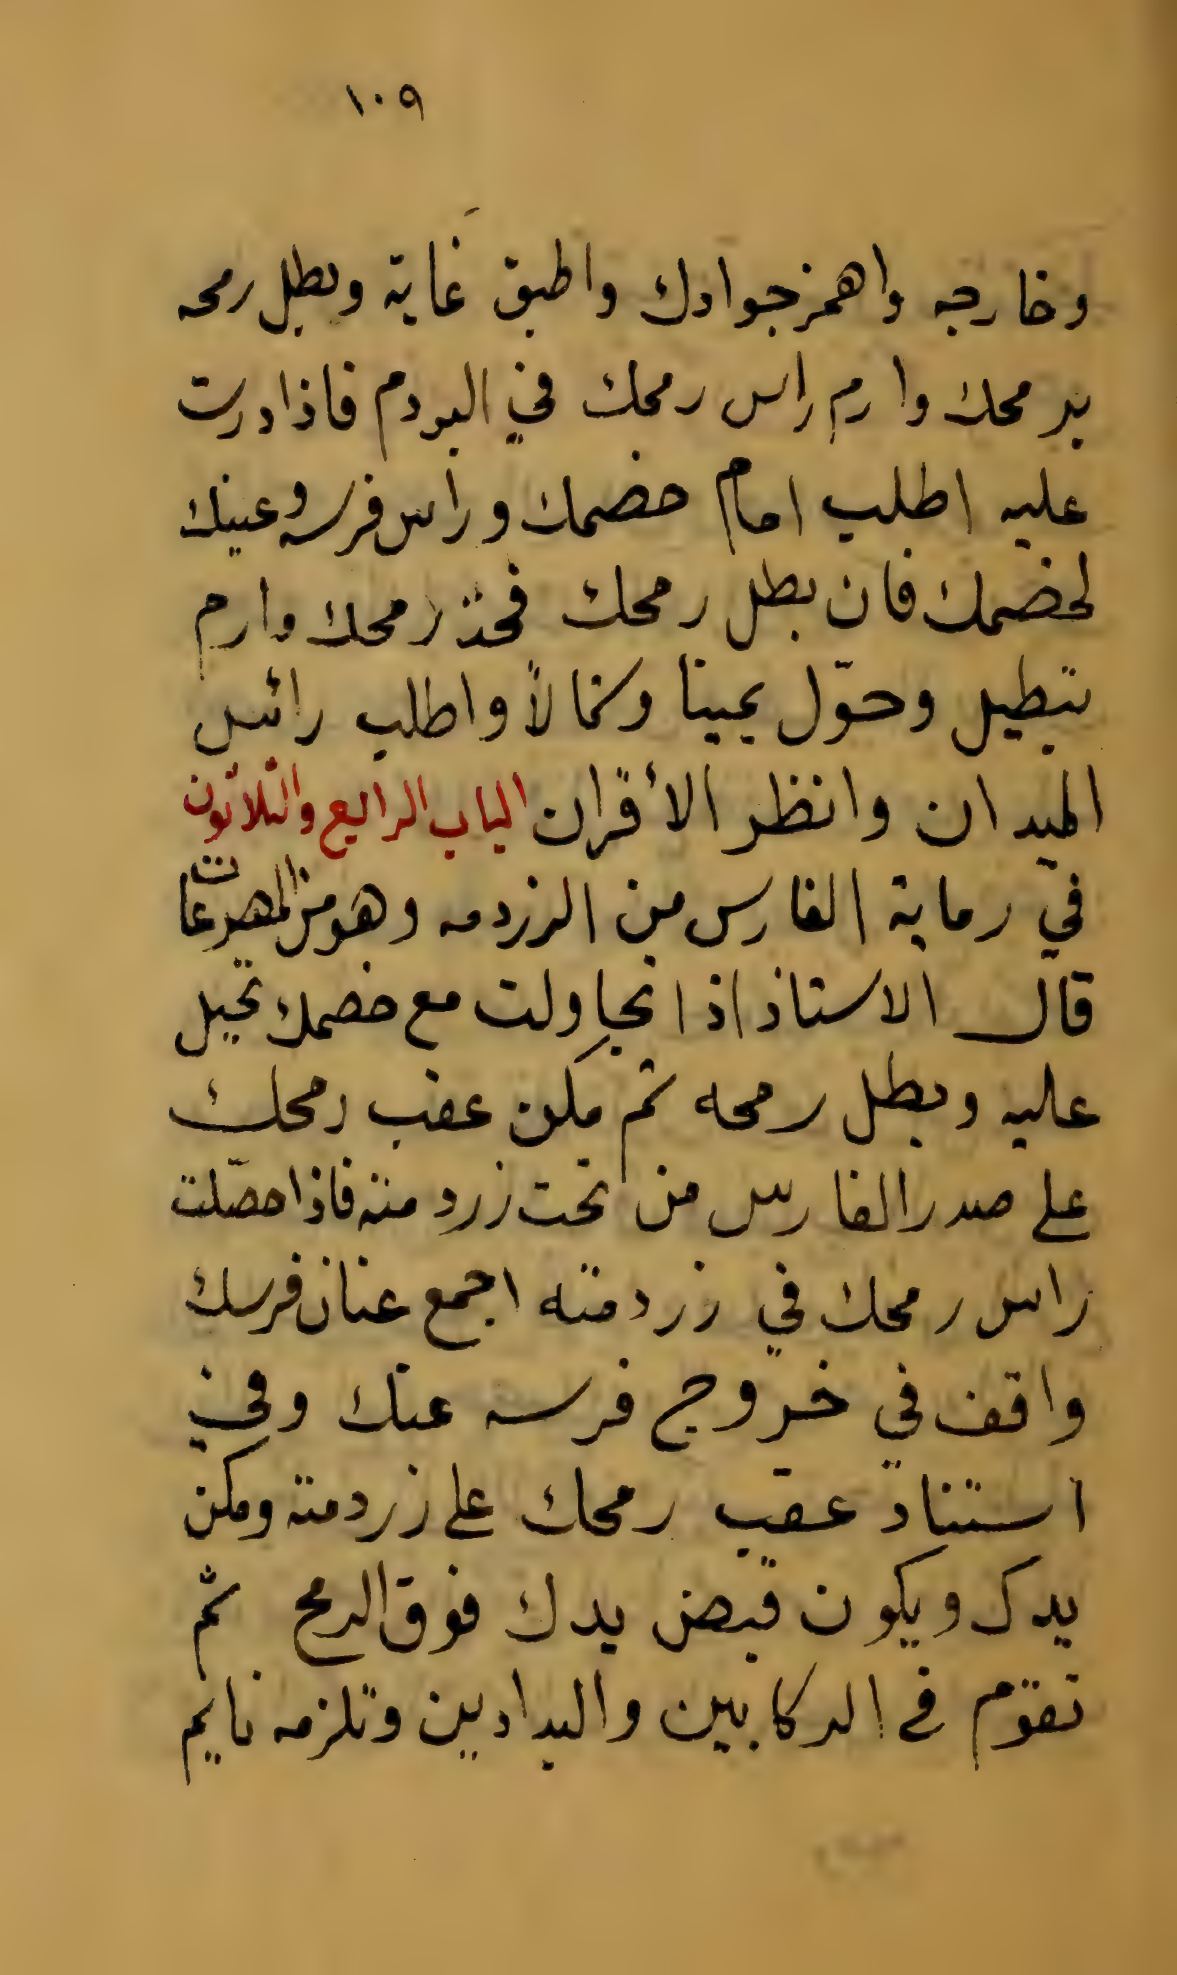 ١٠٩
وخارجه واهمز جوادك واطبق غاية وبطل رمحه
برمحك وارم راس رمحك في البردم فاذا درت
عليه اطلب امام خصمك وراس فرسه وعينك
لخضمك فان بطل رمحك فخذ رمحك وارم
تبطيل وحوّل يمينا وشمالاً واطلب رائس
الميدان وانظر الأقران الباب الرابع والثلاثون
في رماية الفارس من الزردمه وهو من المهرعات
قال الاستاذ اذا تجاولت مع خضمك تحيل
عليه وبطل رمحه ثم مكن عقب رمحك
على صدر الفارس من تحت زردمته فاذا حصّلت
راس رمحك في زردمته اجمع عنان فرسك
واقف في خروج فرسه عنك وفي
استناد عقب رمحك على زردمته ومكن
يدك ويكون قبض يدك فوق الرمح ثم
تقوّم في الركابين والبدادين وتلزمه نايم